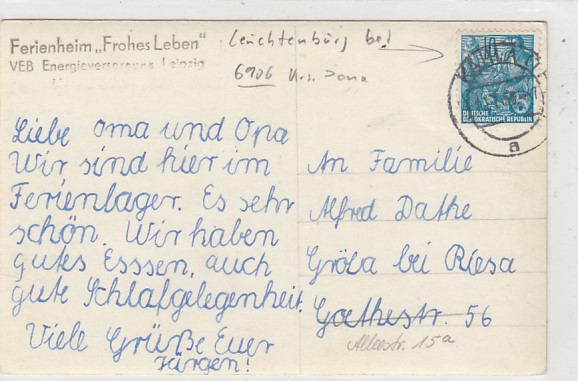 Ferienheim „Frohes Leben"
VEB Energieversorgung Leipzig
Leuchtenburg bei
6906 Krs. Jena
DEUTSCHE
DEMOKRATISCHE REPUBLIK
5
KAHLA
a
Liebe Oma und Opa
Wir sind hier im
Ferienlager. Es sehr
schön. Wir haben
gutes Esssen, auch
gute Schlafgelegenheit.
Viele Grüße Euer
Jürgen!
An Familie
Alfred Dathe
Gröba bei Riesa
Goethestr. 56
Alleestr. 15a